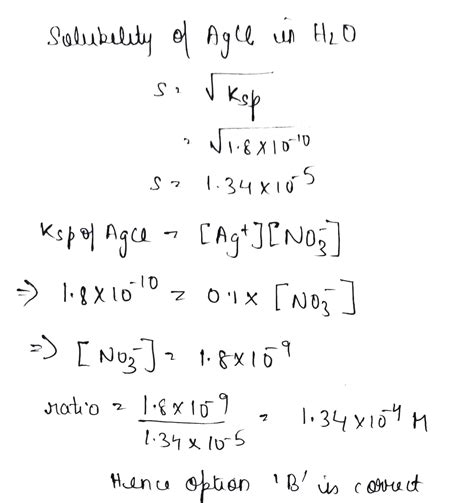 Solubility of AgCl in H₂O
S = √Ksp
= √1.8×10⁻¹⁰
S = 1.34×10⁻⁵
Ksp of AgCl = [Ag⁺][NO₃⁻]
⇒ 1.8×10⁻¹⁰ = 0.1× [NO₃⁻]
⇒ [NO₃⁻] = 1.8×10⁻⁹
ratio = 1.8×10⁻⁹ / 1.34×10⁻⁵ = 1.34×10⁻⁴ M
Hence option 'B' is correct